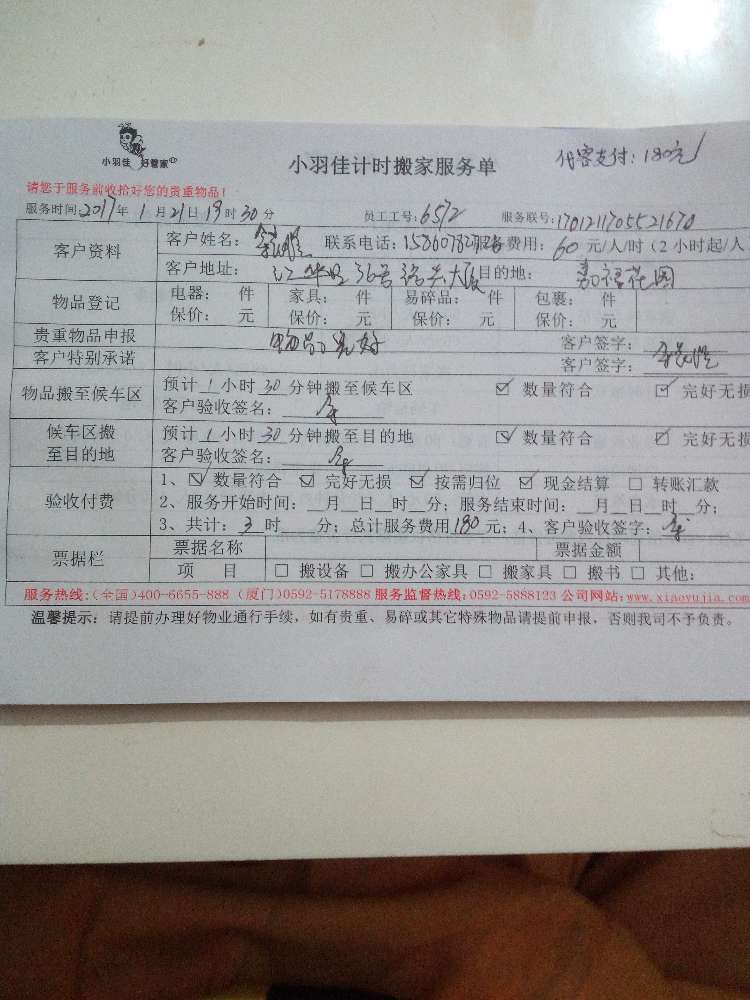 小羽佳 好管家
小羽佳计时搬家服务单 代客支付:180元
请您于服务前收拾好您的贵重物品!
服务时间:2017年1月21日19时30分 员工工号:6572 服务联号:1701211705521670
客户资料 客户姓名: 联系电话: 服务费用:60元/人/时(2小时起/人
客户地址: 36号 大厦 目的地: 嘉福花园
物品登记 电器: 件 家具: 件 易碎品: 件 包裹: 件
保价: 元 保价: 元 保价: 元 保价: 元
贵重物品申报 物品完好 客户签字:
客户特别承诺 客户签字:
物品搬至候车区 预计1小时30分钟搬至候车区 ☑ 数量符合 ☑ 完好无损
客户验收签名:
候车区搬至目的地 预计1小时30分钟搬至目的地 ☑ 数量符合 ☑ 完好无损
客户验收签名:
验收付费 1、☑ 数量符合 ☑ 完好无损 ☑ 按需归位 ☑ 现金结算 □ 转账汇款
2、服务开始时间:__月__日__时__分;服务结束时间:__月__日__时__分;
3、共计:3时__分;总计服务费用180元;4、客户验收签字:
票据栏 票据名称 票据金额
项 目 □ 搬设备 □ 搬办公家具 □ 搬家具 □ 搬书 □ 其他:
服务热线:(全国)400-6655-888 (厦门)0592-5178888 服务监督热线:0592-5888123 公司网站:www.xiaoyujia.com
温馨提示:请提前办理好物业通行手续,如有贵重、易碎或其它特殊物品请提前申报,否则我司不予负责。